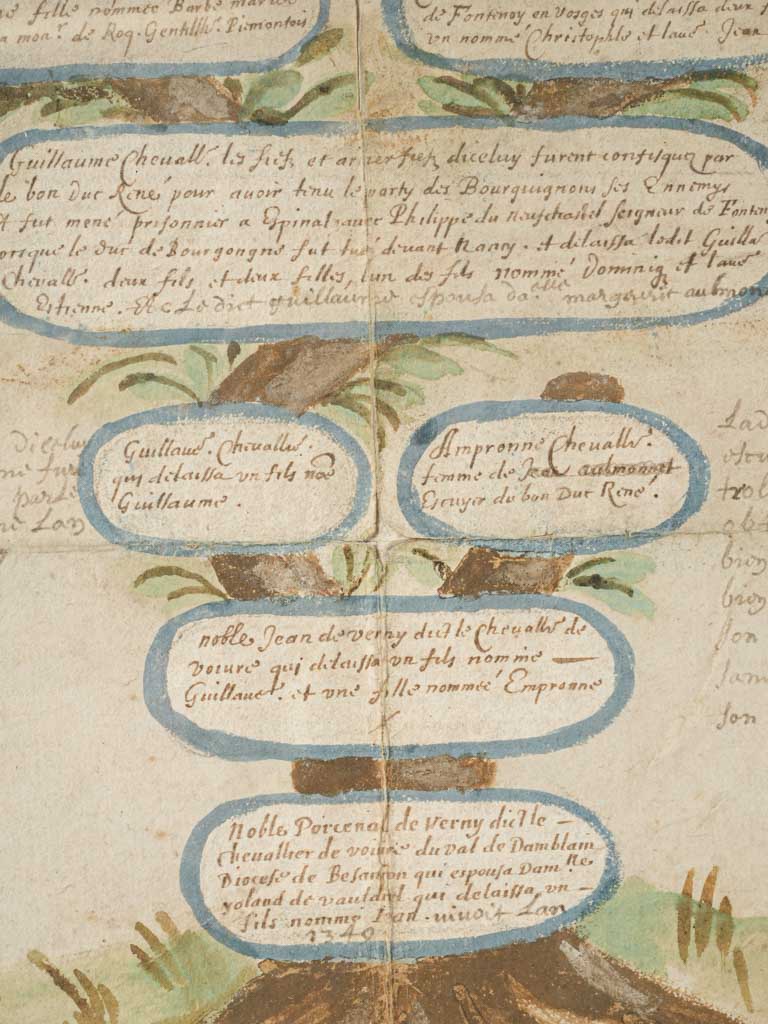 fille nommée Barbe mariée
a mon.r de Roq. Gentillh. Piemontois
de Fontenoy en Vosges qui delaissa deux
vn nommé Christophle et lautr. Jean
Guillaume Chevall.r les fiefz et arrierfiefz diceluy furent confisquez par
le bon Duc René pour auoir tenu le party des Bourguignons ses Ennemys
et fut mené prisonnier a Espinal auec Philippe du neufchastel seigneur de Fonten
lorsque le duc de Bourgongne fut tué deuant Nancy. et delaissa ledit Guilla
Chevallr. deux fils et deux filles, lun des fils nommé Dominiq et lautre
Estienne. Le dict guillaume espousa da.elle margueritt aubmon
Guillaue. Chevallr.
qui delaissa vn fils nõe
Guillaume.
Ampronne Chevallr.
femme de Jean aubmonnet
Escuyer du bon Duc René.
diceluy
parle
Lan
Lad
escu
trol
obt
bien
bien
son
Jam
son
noble Jean de verny dict le Chevallr de
voiure qui delaissa vn fils nomme —
Guillaue. et vne fille nommeé Empronne
Noble Porcenal de verny dict le —
chevallier de voiure du val de Damblain
Diocese de Besanson qui espousa Dam.lle
yoland de vauldrel qui delaissa vn —
fils nomme Jean. viuoit Lan
1340